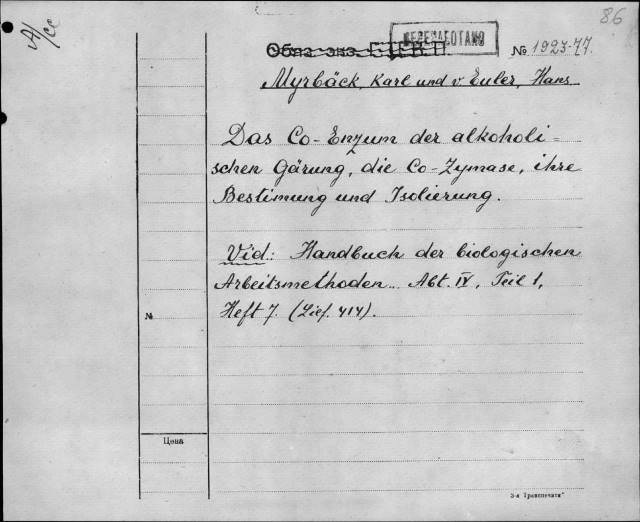 86
A/cc
ПЕРЕРАБОТАНО
Обяз. экз.
№ 1923-77.
Myrbäck, Karl und v. Euler, Hans
Das Co-Enzym der alkoholi-
schen Gärung, die Co-Zymase, ihre
Bestimung und Isolierung.
Vid.: Handbuch der biologischen
Arbeitsmethoden. Abt. IV, Teil 1,
Heft 7. (Lief. 414).
№
Цена
3-я Транспечати"